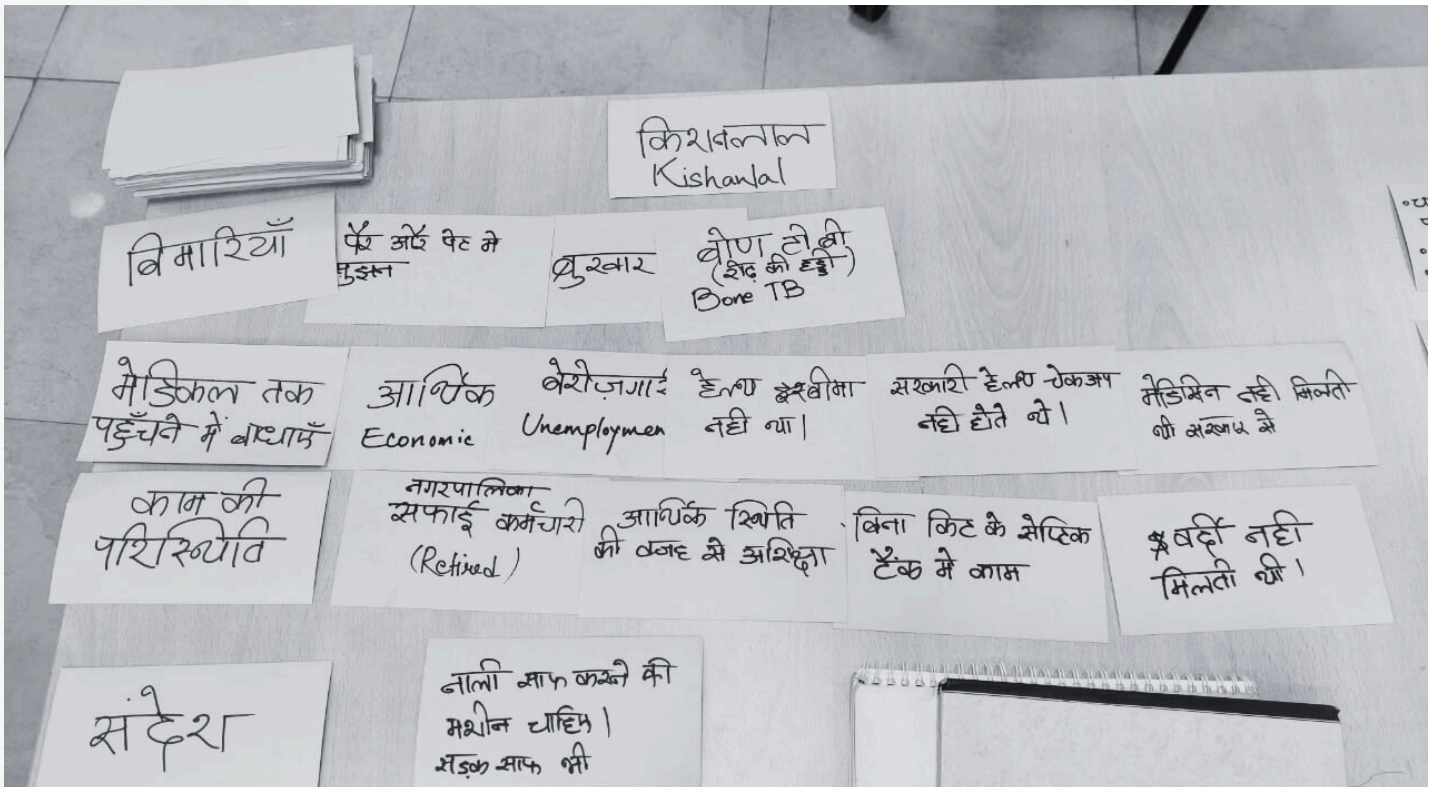 किशनलाल
Kishanlal
बिमारियाँ
पैर और पेट मे
सुझन
बुखार
बोण टी बी
(रीढ़ की हड्डी)
Bone TB
मेडिकल तक
पहुँचने में बाधाएँ
आर्थिक
Economic
बेरोज़गारी
Unemploymen
हेल्थ बीमा
नही था।
सरकारी हेल्थ चेकअप
नही होते थे।
मेडिसिन नही मिलती
थी सरकार से
काम की
परिस्थिति
नगरपालिका
सफाई कर्मचारी
(Retired)
आर्थिक स्थिति
की वजह से अशिक्षा
बिना किट के सेप्टिक
टैंक मे काम
वर्दी नही
मिलती थी।
संदेश
नाली साफ करने की
मशीन चाहिए।
सड़क साफ भी